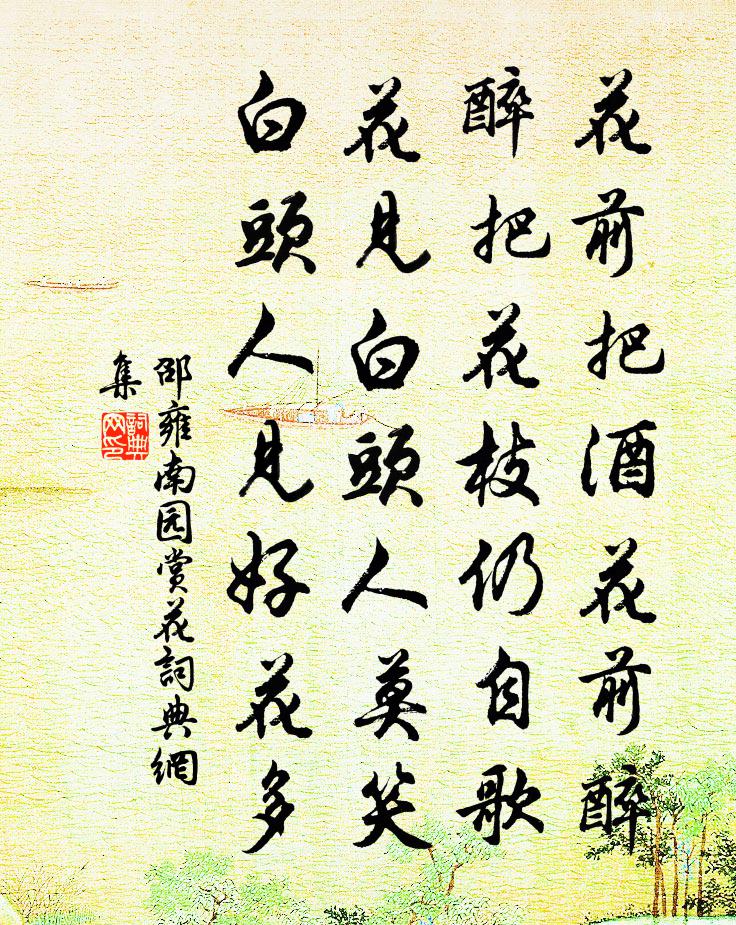 花前把酒花前醉
醉把花枝仍自歌
花見白頭人莫笑
白頭人見好花多
邵雍南园赏花詞典網
集
詞典
网印